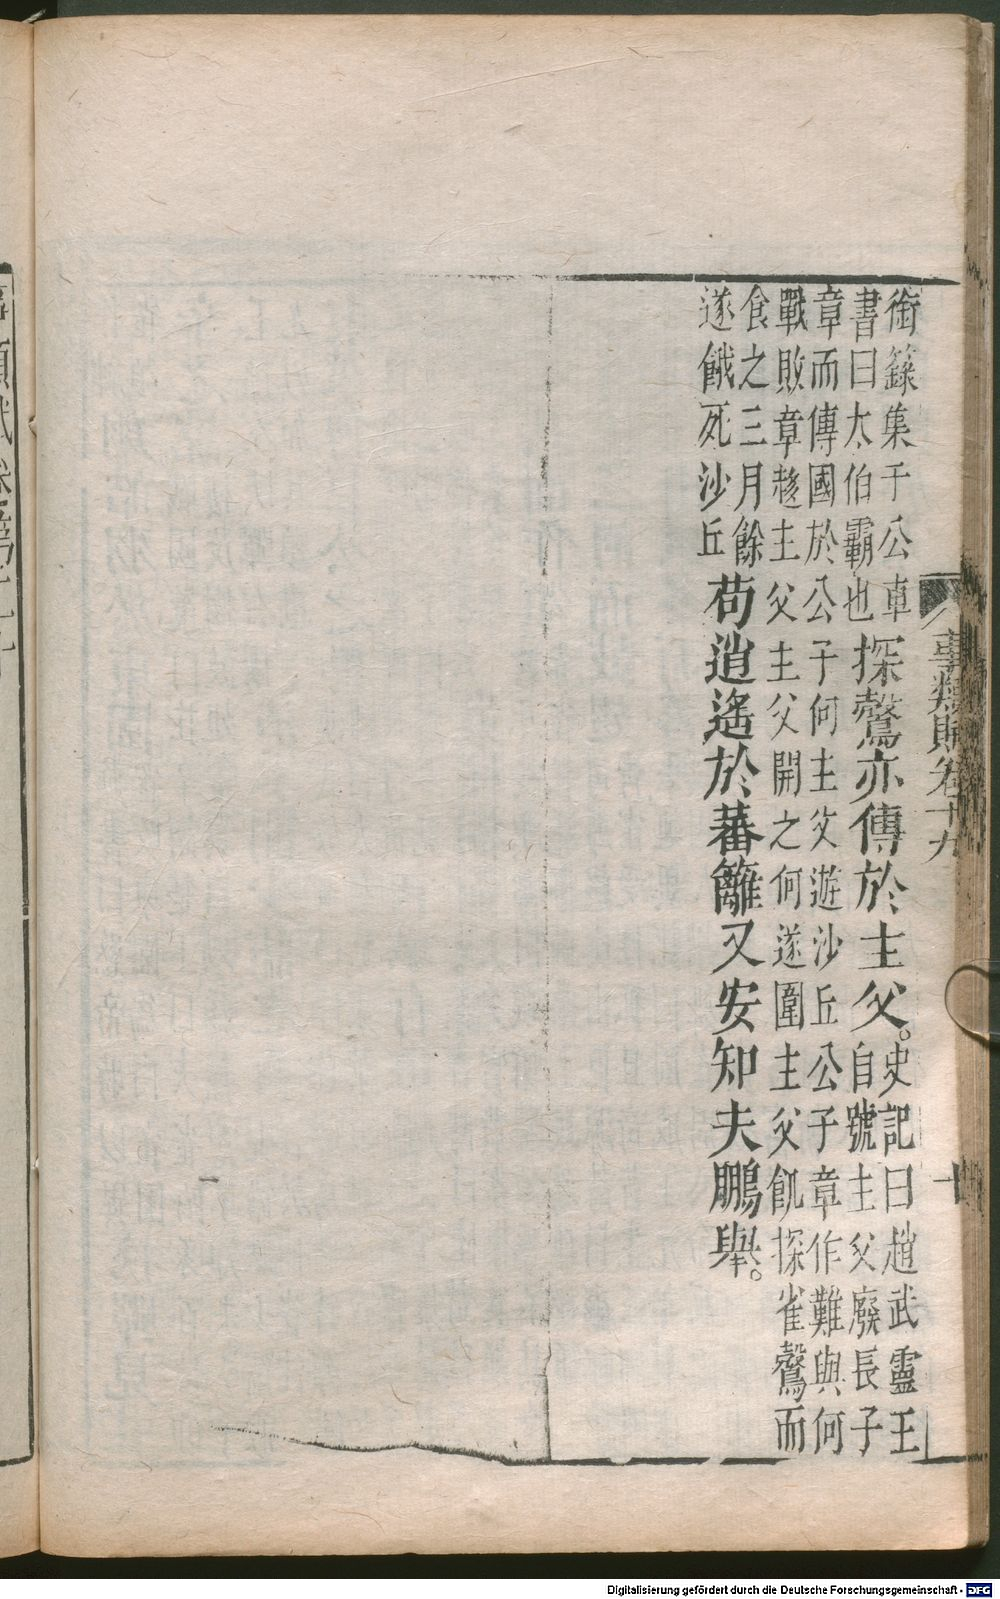 銜籙集于公車
書曰太伯霸也
探鷇亦傳於主父。
史記曰趙武靈王
自號主父廢長子
章而傳國於公子何主父遊沙丘公子章作難與何
戰敗章趍主父主父開之何遂圍主父飢探雀鷇而
食之三月餘
遂餓死沙丘
苟逍遙於蕃籬又安知夫鵬舉。
事類賦卷十九
十
事類賦卷第十九
Digitalisierung gefördert durch die Deutsche Forschungsgemeinschaft - DFG